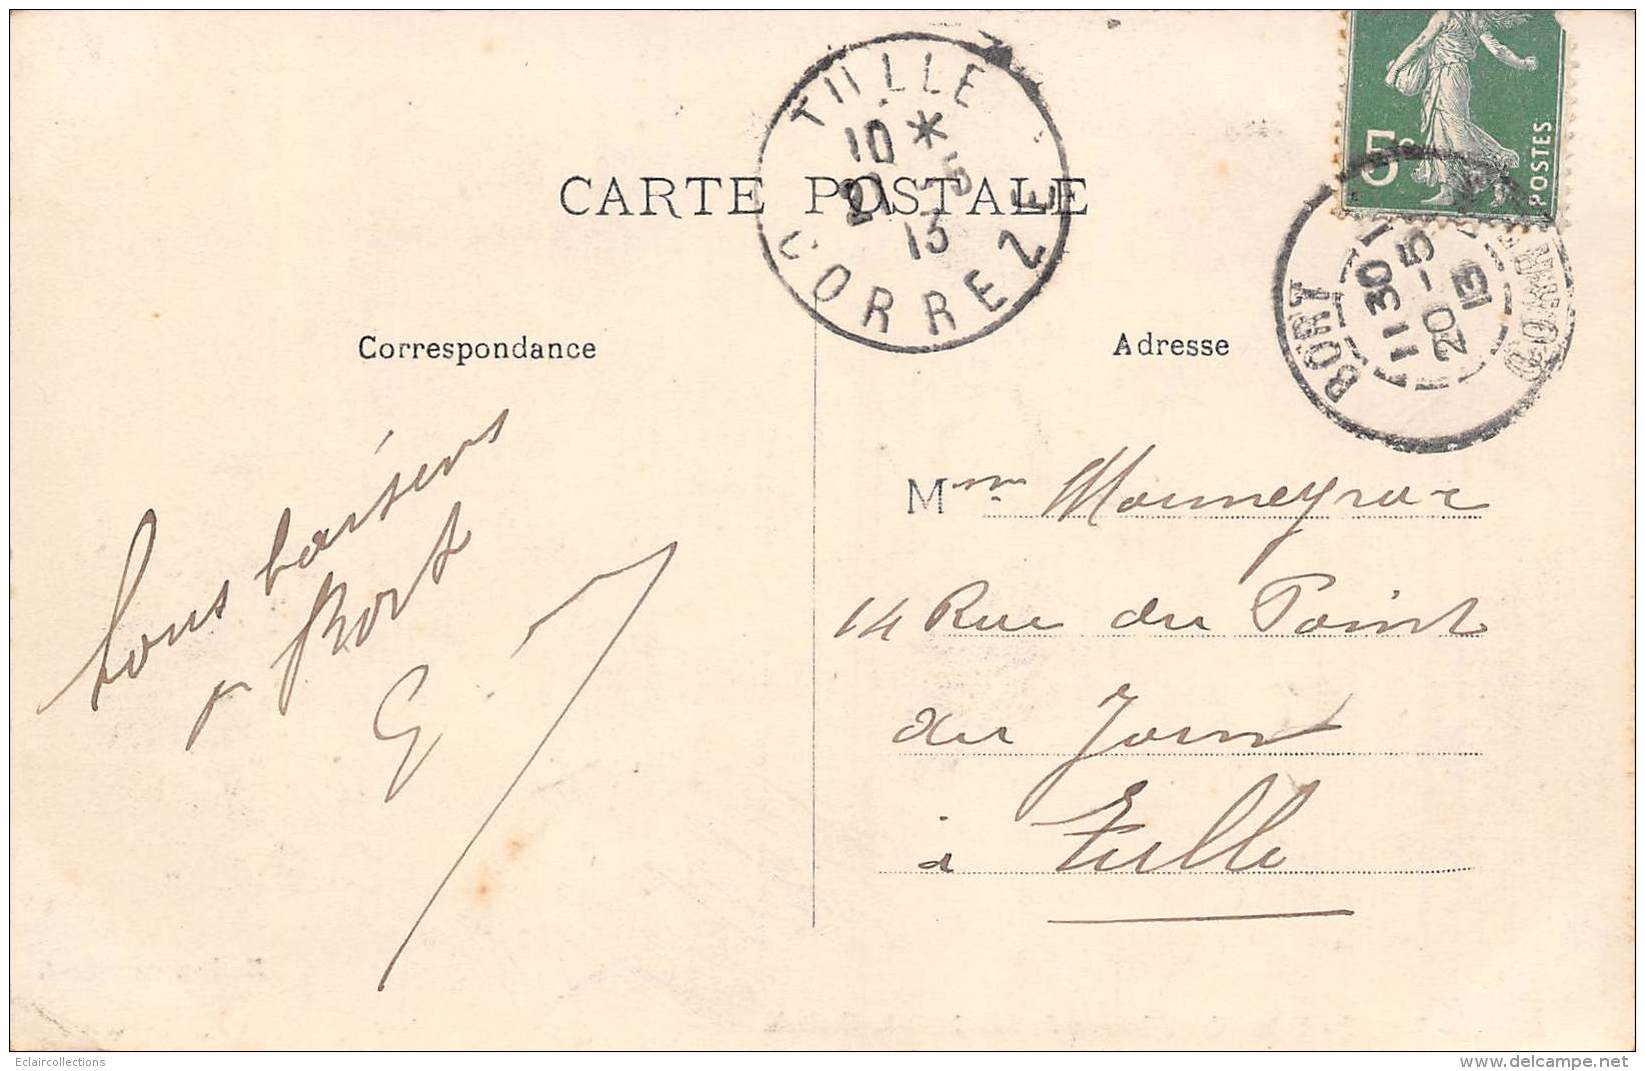 CARTE POSTALE
TULLE
10 *
21 5
13
CORREZE
5c
POSTES
BORT
11 30
20 -5
13
Correspondance
Adresse
baisers
Bort
Mme Moumeyrac
14 Rue du Point
du Jour
à Tulle
Eclaircollections
www.delcampe.net